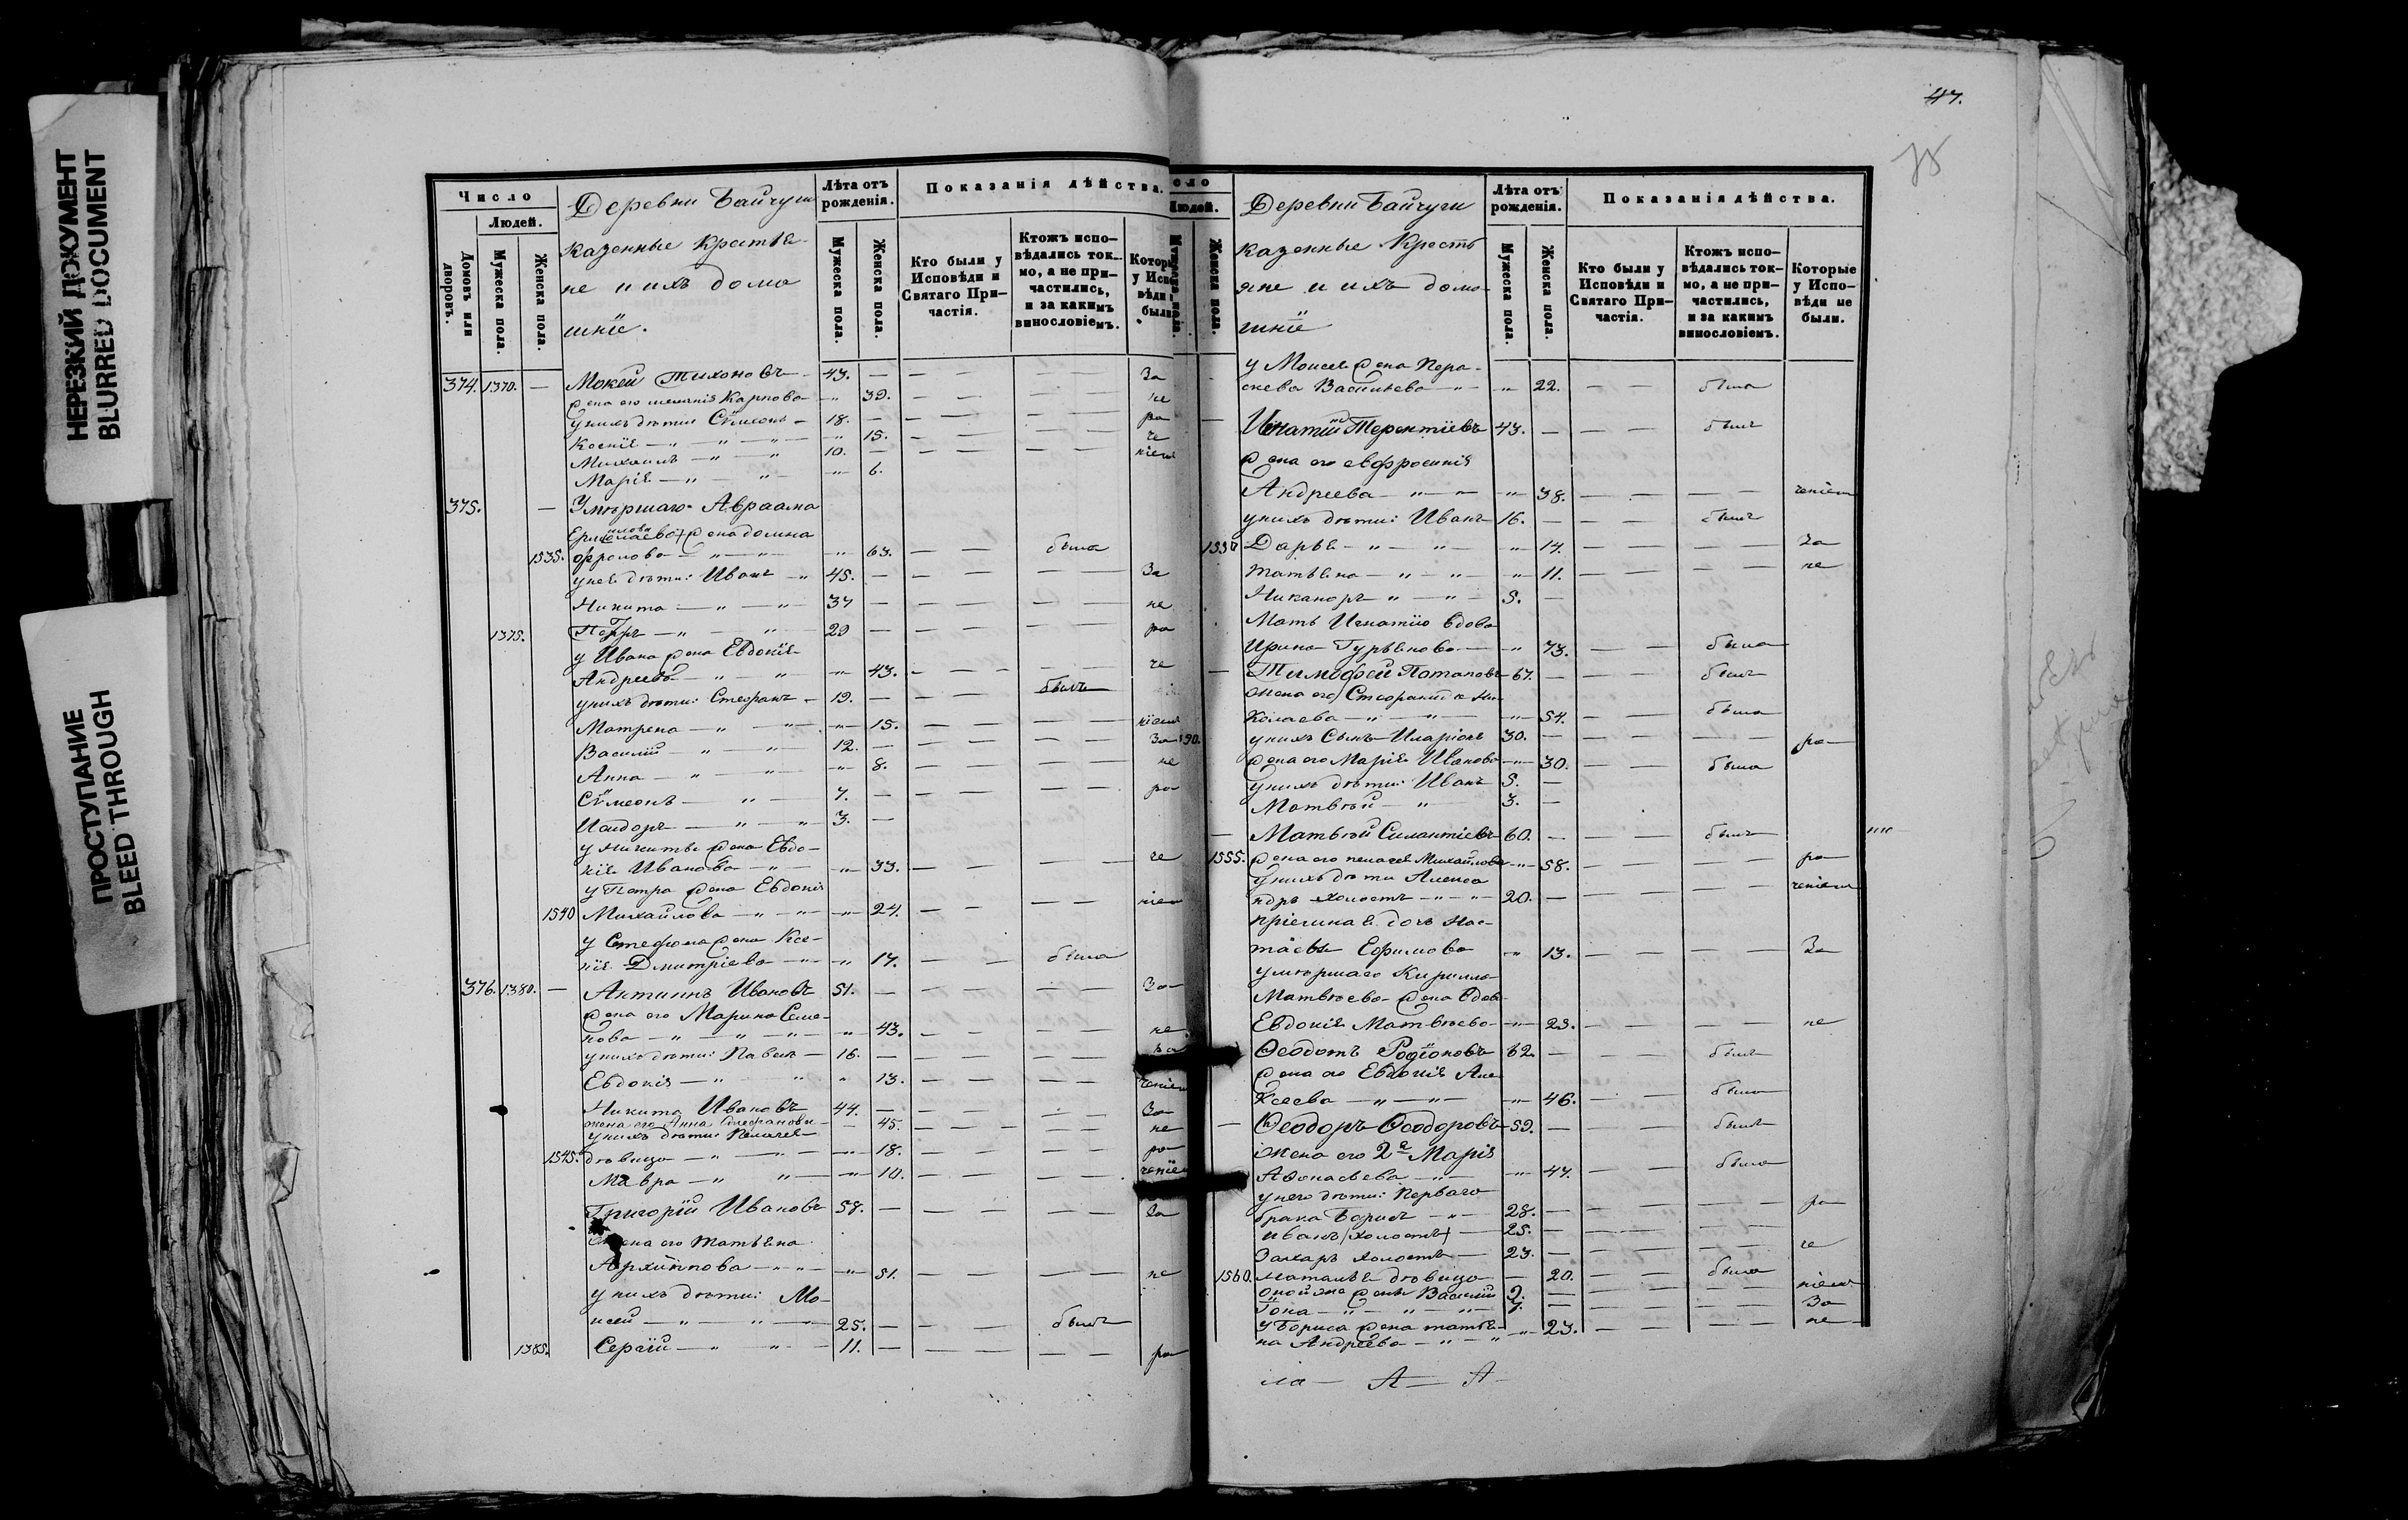 НЕРЕЗКИЙ ДОКУМЕНТ
BLURRED DOCUMENT
ПРОСТУПАНИЕ
BLEED THROUGH
Число
Людей.
Домовъ или дворовъ.
Мужеска пола.
Женска пола.
Деревни Байчуги
казенные крестья-
не и ихъ дома
шніе.
Лѣта отъ рожденія.
Мужеска пола.
Женска пола.
Показанія дѣйства.
Кто были у Исповѣди и Святаго При-частія.
Ктожъ испо-вѣдались ток-мо, а не при-частились, и за какимъ винословіемъ.
Которы у Исп вѣди были
374. 1370. — Мокей Тихоновъ 43. — За
жена его Карпова 39. не
у нихъ дѣти: Сѵмеонъ 18. ра
Ксенія 15. че
Михаилъ 10. ніемъ
Марія 6.
375. — Умершаго Авраама
жена домна
1535. Фролова 63. была
у нея дѣти: Иванъ 45. За
Никита 37 не
1375. Петръ 29 ра
у Ивана жена Евдокія
Андреева 43. че
у нихъ дѣти: Стефанъ 19. былъ
Матрена 15. ніемъ
Василій 12. За
Анна 8. не
Сѵмеонъ 7. ра
Исидоръ 3.
у Никиты жена Евдо-
кія Иванова 33. че
у Петра жена Евдокія
1540 Михайлова 24. ніемъ
у Стефана жена Ксе-
нія Дмитріева 17. была
376. 1380. — Антипъ Ивановъ 51. За
жена его Марина Семе-
нова 43. не
у нихъ дѣти: Павелъ 16. ра
Евдокія 13. ченіемъ
Никита Ивановъ 44. За
жена его Анна Стефанова 45. не
у нихъ дѣти: Пелагея
1545. дѣвица 18. ра
Мавра 10. ченіем
Григорій Ивановъ 58. За
жена его Татьяна
Архиппова 51. не
у нихъ дѣти: Мо-
исей 25. былъ
1385. Сергій 11. ра
47.
75
сло
Людей.
Мужеска пола.
Женска пола.
Деревни Байчуги
казенные Кресть
яне и ихъ дома-
шніе
Лѣта отъ рожденія.
Мужеска пола.
Женска пола.
Показанія дѣйства.
Кто были у Исповѣди и Святаго При-частія.
Ктожъ испо-вѣдались ток-мо, а не при-частились, и за какимъ винословіемъ.
Которые у Испо-вѣди не были.
у Моисея жена Пара-
скева Васильева 22. была
— Игнатій Терентіевъ 43. былъ
жена его Евфросинія
Андреева 38. ченіемъ
у нихъ дѣти: Иванъ 16. былъ
1550 Дарья 14. За
Татьяна 11. не
Никаноръ 5.
Мать Игнатію вдова
Ирина Гурьянова 73. была
— Тимофей Потаповъ 67. былъ
жена его Стефанида Ни-
колаева 54. была
90. у нихъ Сынъ Иларіонъ 30. ра
жена его Марія Иванова 30. была
у нихъ дѣти: Иванъ 5.
Матвѣй 3.
— Матвѣй Силантіевъ 60. былъ
1555. жена его Пелагея Михайлова 58. ра
у нихъ дѣти Алекса
ндръ холостъ 20. ченіемъ
пріемная дочь Нас-
тасья Ефимова 13. За
умершаго Кирилла
Матвѣева жена вдова
Евдокія Матвѣева 23. не
Ѳеодотъ Родіоновъ 62. былъ
жена его Евдокія Але-
ксеева 46. была
— Ѳеодоръ Ѳеодоровъ 59. былъ
жена его 2я Марія
Афонасьева 47. была
у него дѣти: перваго
брака Борисъ 28. ра
Иванъ /холостъ/ 25.
Захаръ холостъ 23. че
1560. Наталья дѣвица 20. была
Василій 9. ніемъ
Іона 7. За
у Бориса жена татья-
на Андреева 23. не
ла — А — А